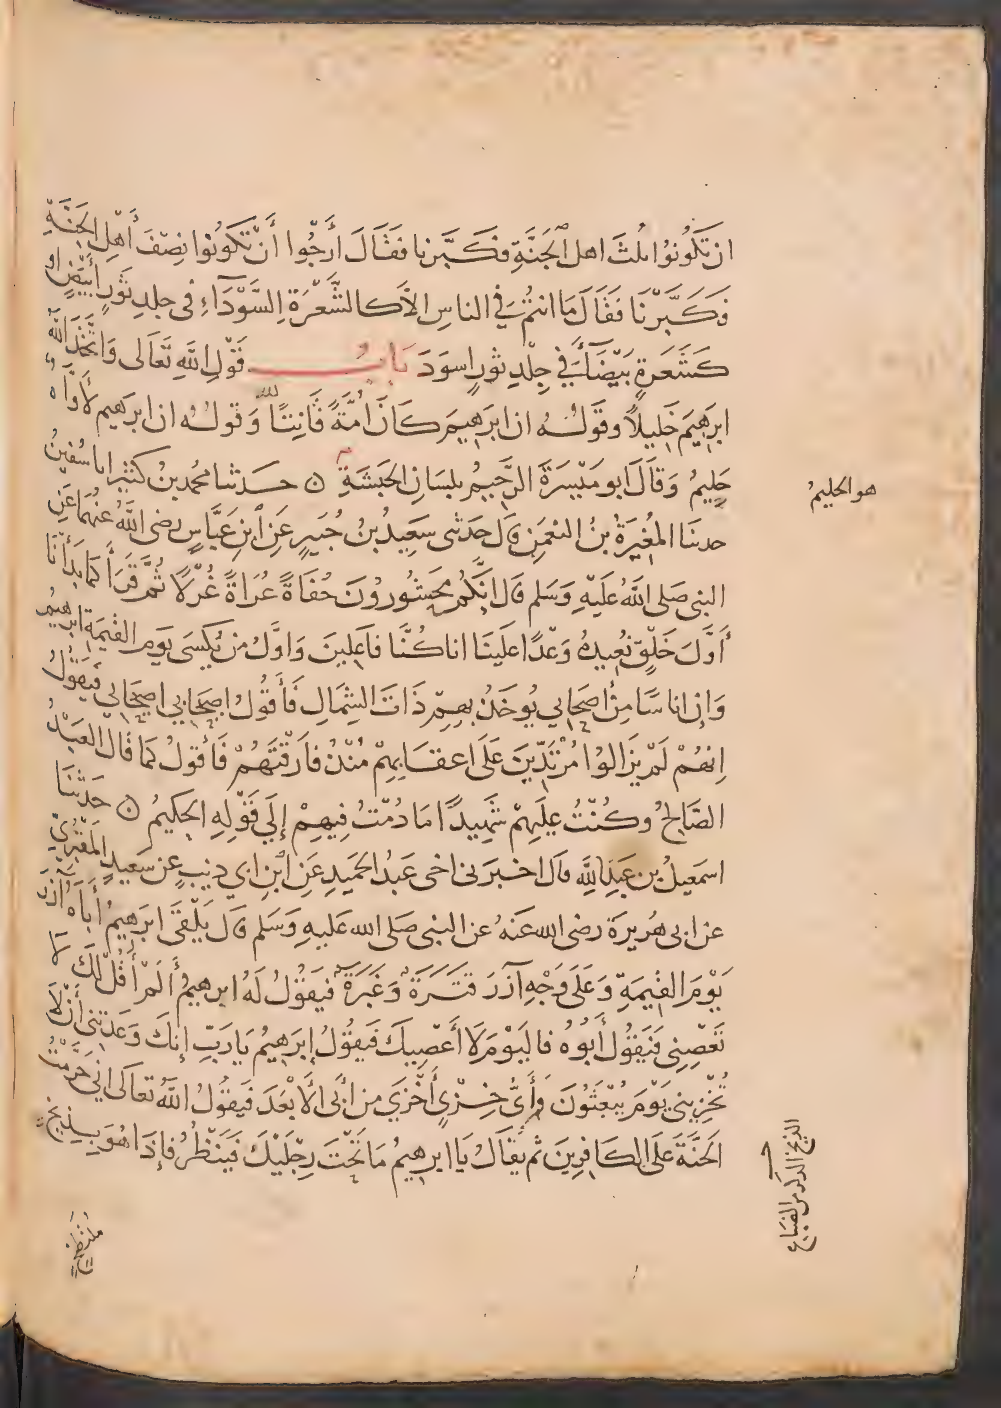 ان تَكُونُوا ثلثَ اهل الجَنَّةِ فكَبَّرنا فقَالَ أَرجُوا أَنْ تَكُونُوا نِصْفَ أَهْلِ الجَنَّةِ
فكَبَّرْنَا فقَالَ مَا انتُمْ في الناسِ الاَّ كالشَّعْرَةِ السَّوْدَاءِ في جلدِ ثَورٍ أَبْيَضَ او
كشَعَرَةٍ بَيْضَآءَ في جِلْدِ ثورٍ اسوَدَ بَابُ قَوْلِ اللهِ تَعَالى وَاتَّخَذَ اللهُ
ابرَهِيمَ خَلِيلاً وقولُهُ ان ابرهِيمَ كانَ اُمَّةً قَانِتًا لله وَقولُهُ ان ابرهيم لأَوَّاه
حَلِيمٌ وَقالَ ابو مَيْسَرَةَ الرَّحِيمُ بلسَانِ الحَبَشَةِ ں حدثنا محمد بنُ كثيرٍ انا سُفينُ
حدثنَا المُغِيرَةُ بنُ النعمن قال حدثنى سَعِيدُ بنُ جُبَيرٍ عَنِ ابْنِ عَبَّاسٍ رضى اللهُ عنهُمَا عَنِ
النبى صَلى اللهُ عَلَيْهِ وَسَلم قال انَّكُم محشُورُونَ حُفَاةً عُرَاةً غُرْلًا ثُمَّ قَرَأَ كما بَدَأْنَا
أَوَّلَ خَلْقٍ نُعِيدهُ وَعْدًا عَلَينَا انا كُنَّا فاعِلينَ وَاوَّلُ من يُكْسَى يَومَ القيمَةِ ابرهيمُ
وَإن اناسًا مِنْ اصحَابي يُوخَذُ بهِمْ ذَاتَ الشِّمَالِ فَأَقُولُ اصيحابي اصيحَابي فيَقُولُ
انهُمْ لَمْ يَزالوُا مُرْتَدِّينَ عَلَى اعقابِهِمْ مُنْذُ فارَقْتَهُمْ فَأَقولُ كما قَالَ العَبْدُ
الصَّالِحُ وَكُنْتُ عليهِمْ شَهِيدًا مَا دُمْتُ فِيهِمْ إِلَي قَوْلِهِ الحكيمُ ں حَدثنَا
اسمعيلُ بن عبدِ اللهِ قال اخبرَنى اخى عَبدُ الحميدِ عَنِ ابْنِ ابي ذيبٍ عن سَعيدٍ المَقْبُرِيِّ
عن ابى هُريرَةَ رضى الله عَنهُ عن النبى صَلى الله عَليهِ وَسَلم قال يَلْقَى ابرَهِيمُ أَبَاهُ آزَرَ
يَوْمَ القيمَةِ وَعَلَى وَجْهِ آزَرَ قتَرَةٌ وَغَبَرَةٌ فيَقُولُ لَهُ ابرهيمُ أَلَمْ أَقُلْ لَكَ لاَ
تَعْصِنِى فَيَقُولُ أَبُوهُ فاليَوْمَ لَا أَعْصِيكَ فَيَقُولُ إِبرَهِيمُ يَا رَبِّ إِنكَ وَعَدتنى أَنْ لَا
تُخْزِيني يَومَ يُبْعَثُونَ وَأَيُّ خِزْيٍ أَخْزَي مِن أَبِى الأَبْعَدَ فَيَقُولُ اللهُ تعالى انِّى حَرَّمْتُ
الجَنَّةَ عَلَى الكَافِرِينَ ثم يُقَالُ يَا ابرهِيمُ مَا تَحْتَ رِجْلَيْكَ فيَنْظُرُ فإذَا هُوَ بِذِيخٍ
مُلْتَطِخٍ
هو الحليمُ
الذيخ الذكر من الضباع